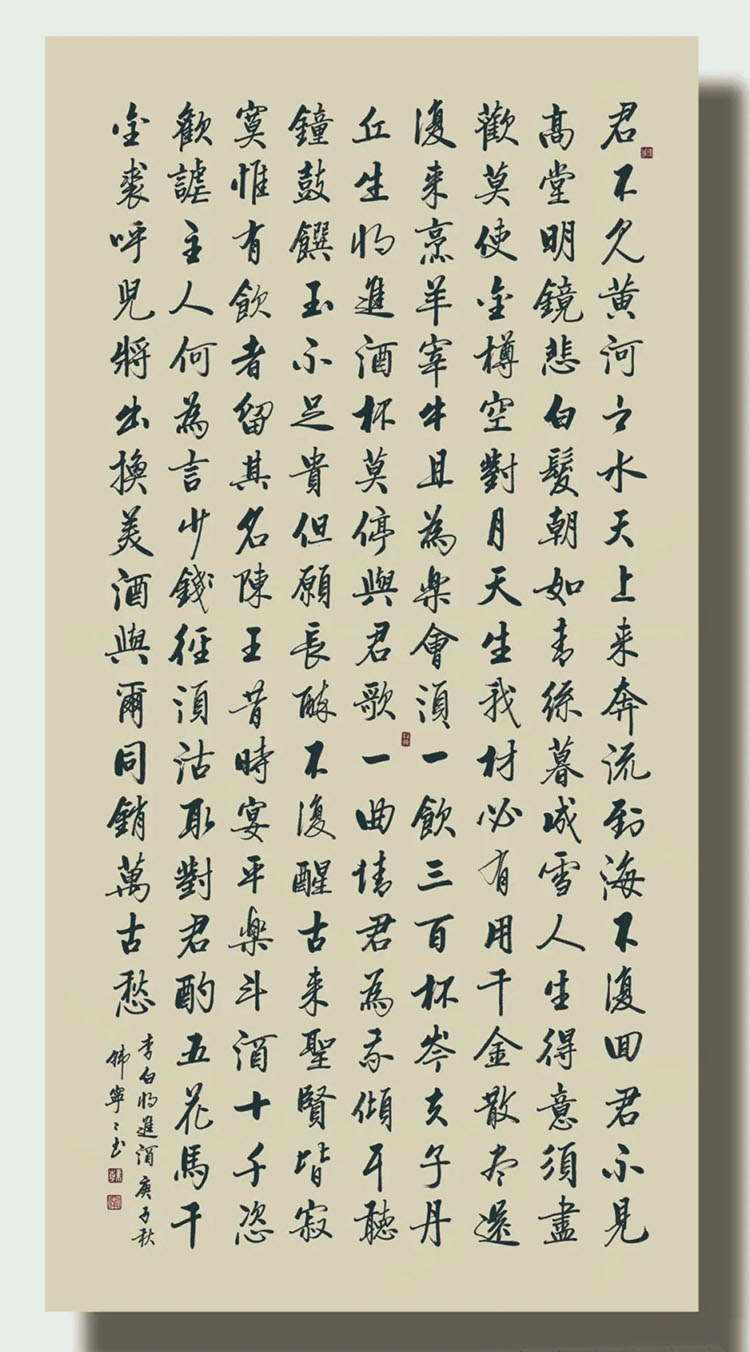 君不見黄河之水天上来奔流到海不復回君不見
高堂明鏡悲白髮朝如青絲暮成雪人生得意須盡
歡莫使金樽空對月天生我材必有用千金散盡還
復来烹羊宰牛且為樂會須一飲三百杯岑夫子丹
丘生將進酒杯莫停與君歌一曲請君為我傾耳聽
鐘鼓饌玉不足貴但願長醉不復醒古来聖賢皆寂
寞惟有飲者留其名陳王昔時宴平樂斗酒十千恣
歡謔主人何為言少錢徑須沽取對君酌五花馬千
金裘呼兒將出換美酒與爾同銷萬古愁
李白將進酒庚子秋
寧〻书